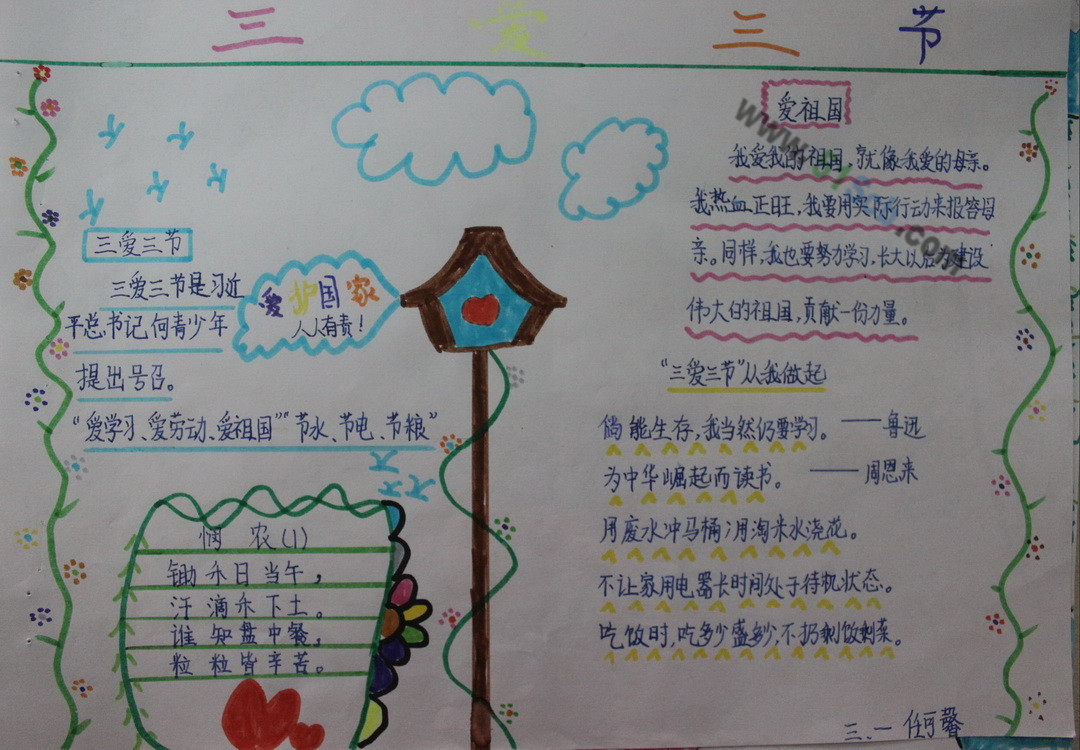 三 爱 三 节
三爱三节
三爱三节是习近
平总书记向青少年
提出号召。
“爱学习、爱劳动、爱祖国”“节水、节电、节粮”
爱护国家
人人有责！
悯 农(1)
锄禾日当午，
汗滴禾下土。
谁知盘中餐，
粒粒皆辛苦。
爱祖国
我爱我的祖国，就像我爱的母亲。
我热血正旺，我要用实际行动来报答母
亲。同样，我也要努力学习，长大以后为建设
伟大的祖国，贡献一份力量。
“三爱三节”从我做起
倘能生存，我当然仍要学习。——鲁迅
为中华崛起而读书。——周恩来
用废水冲马桶；用淘米水浇花。
不让家用电器长时间处于待机状态。
吃饭时，吃多少盛多少，不扔剩饭剩菜。
三、一 任可馨